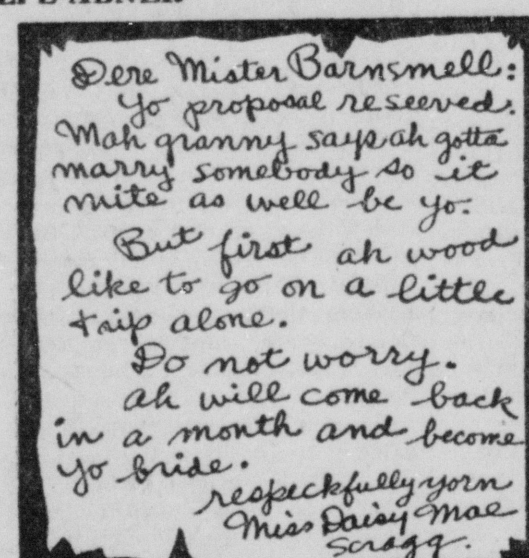 Dere Mister Barnsmell:
Yo proposal reseeved.
Mah granny says ah gotta
marry somebody so it
mite as well be yo.
But first ah wood
like to go on a little
trip alone.
Do not worry.
ah will come back
in a month and become
yo bride.
respeckfully yorn
Miss Daisy Mae
Scragg.